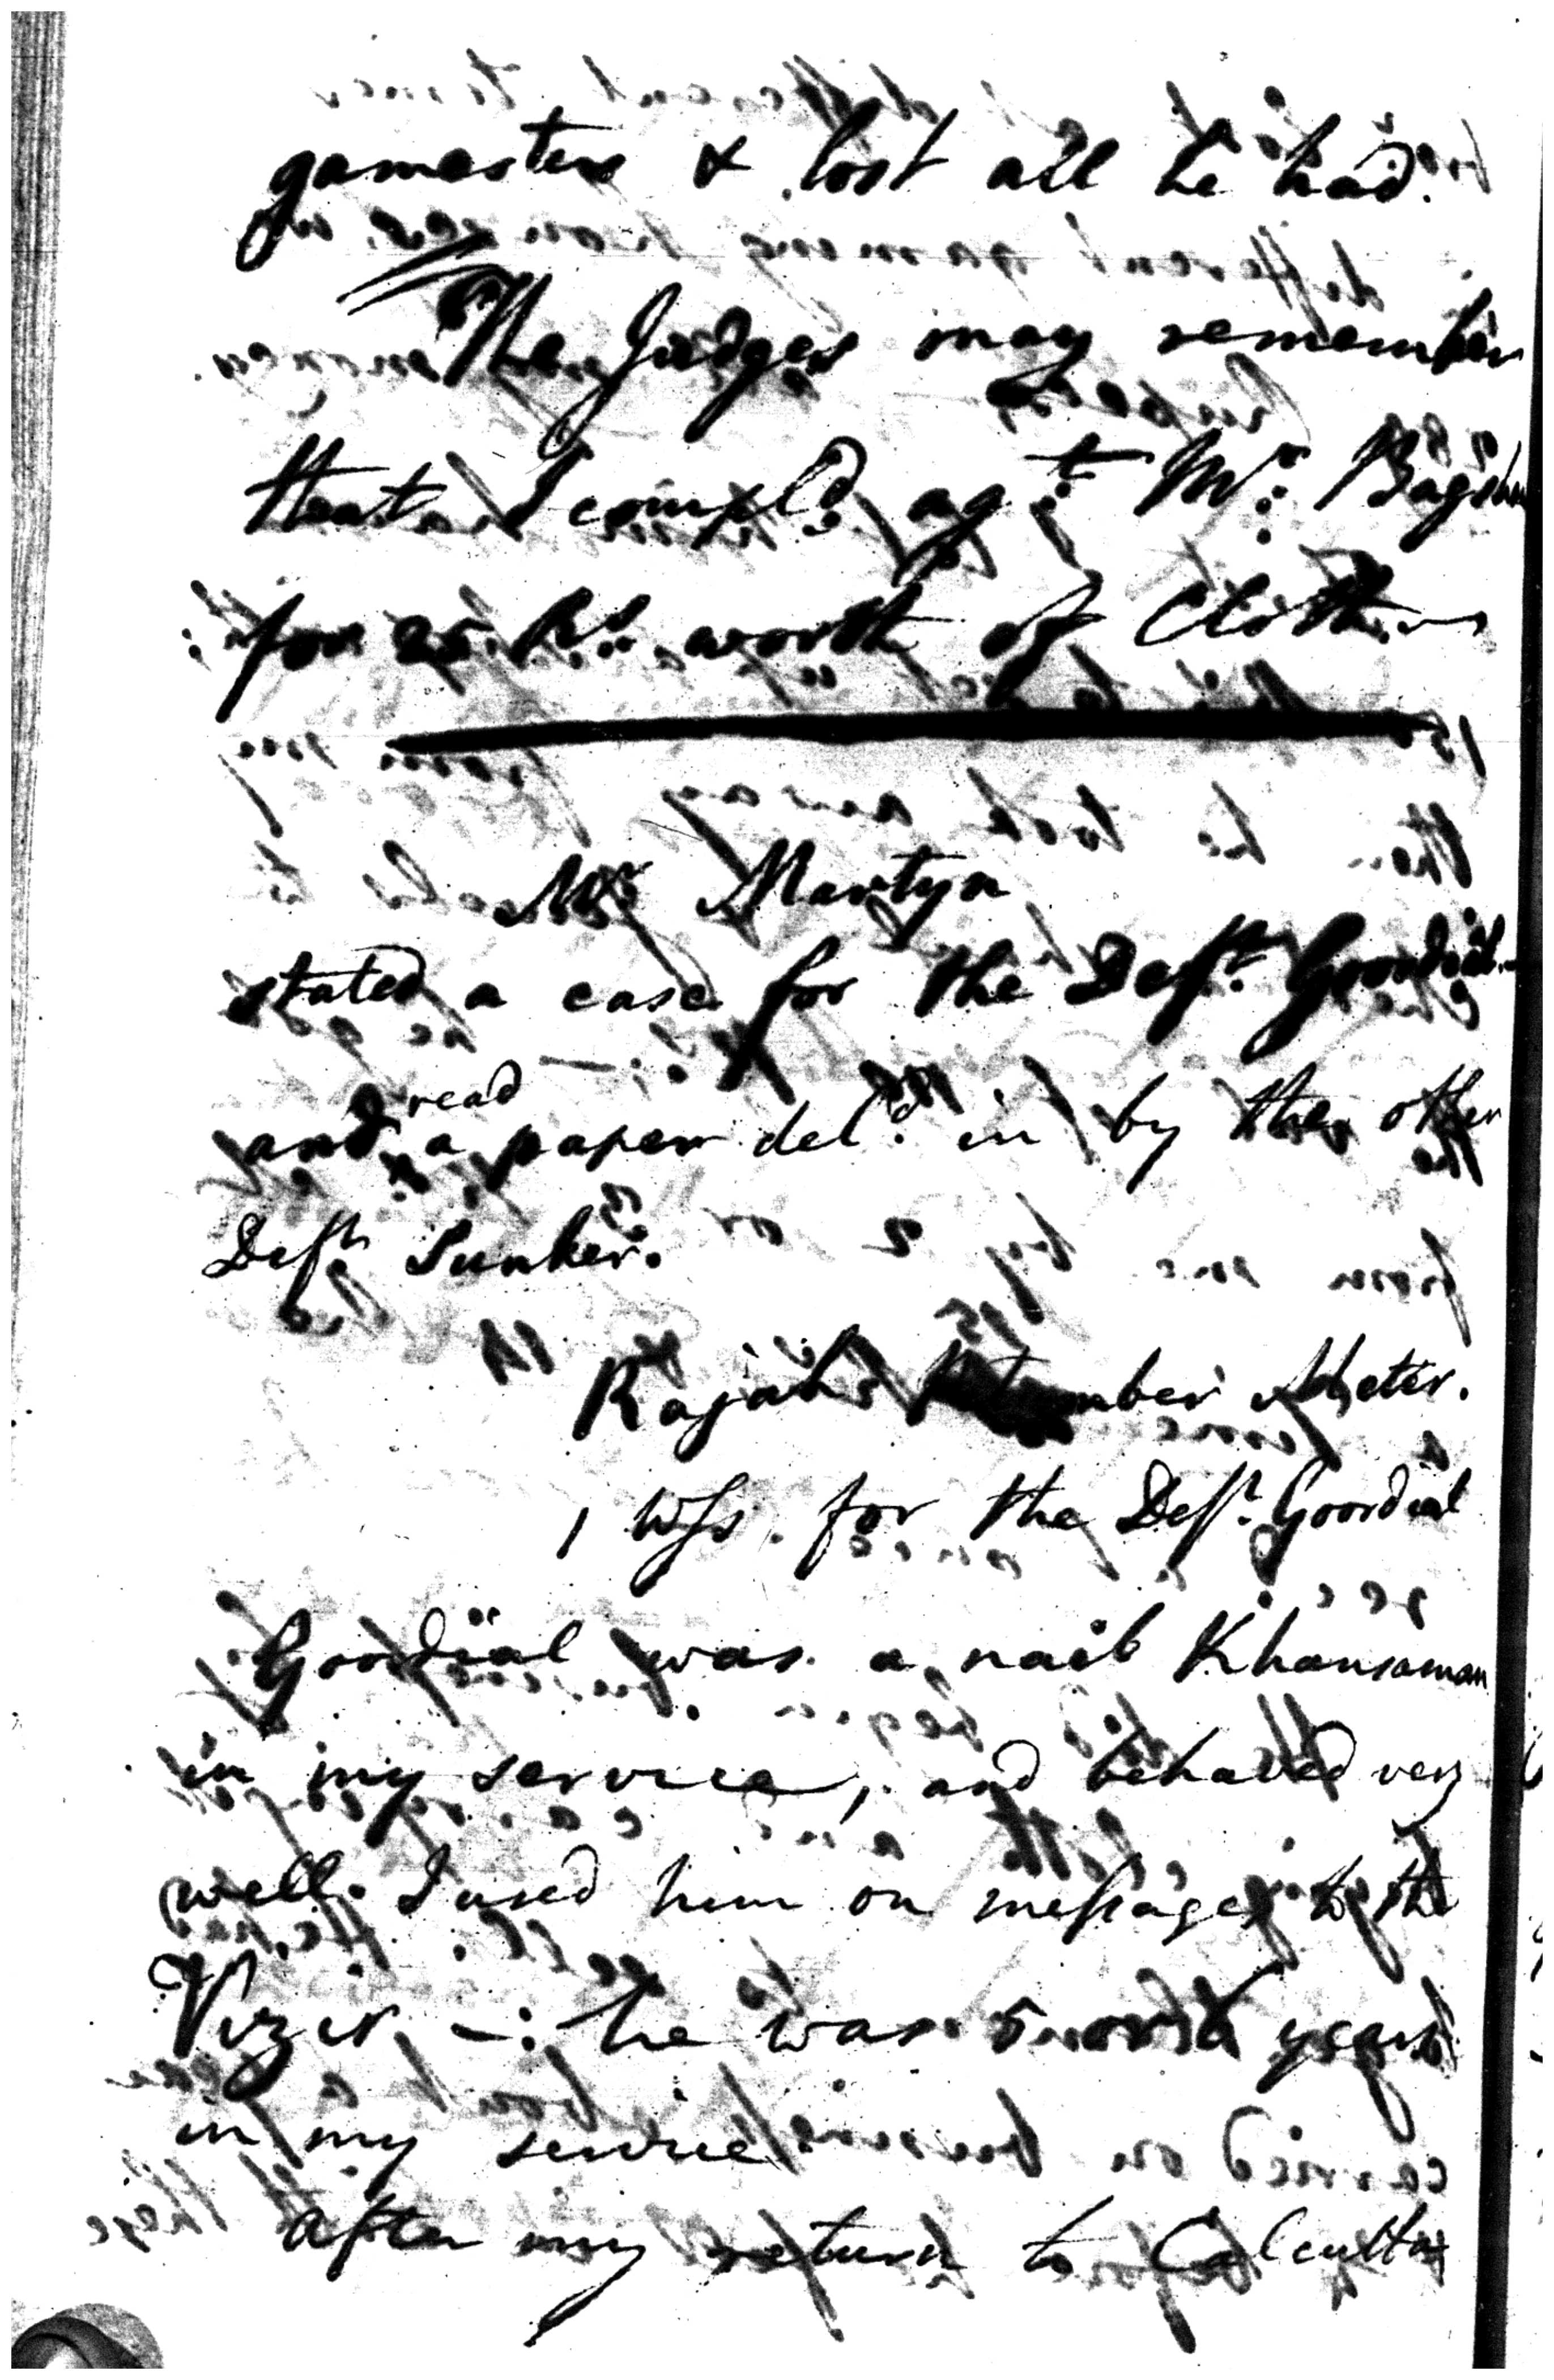 gamesters & lost all he had.
The Judges may remember
that I compl.d ag.t Mr. Bagshaw
for 25 Rs. worth of Clothes
Mr Martyn
stated a case for the Deft. Goordial
and read a paper del.d in by the other
Deft. Sunker.
Rajah Meter.
1 Wss. for the Deft. Goordial
Goordial was a naib Khansaman
in my service, and behaved very
well. I used him on messages to the
Vizir -: he was 5 or 6 years
in my service
After my return to Calcutta